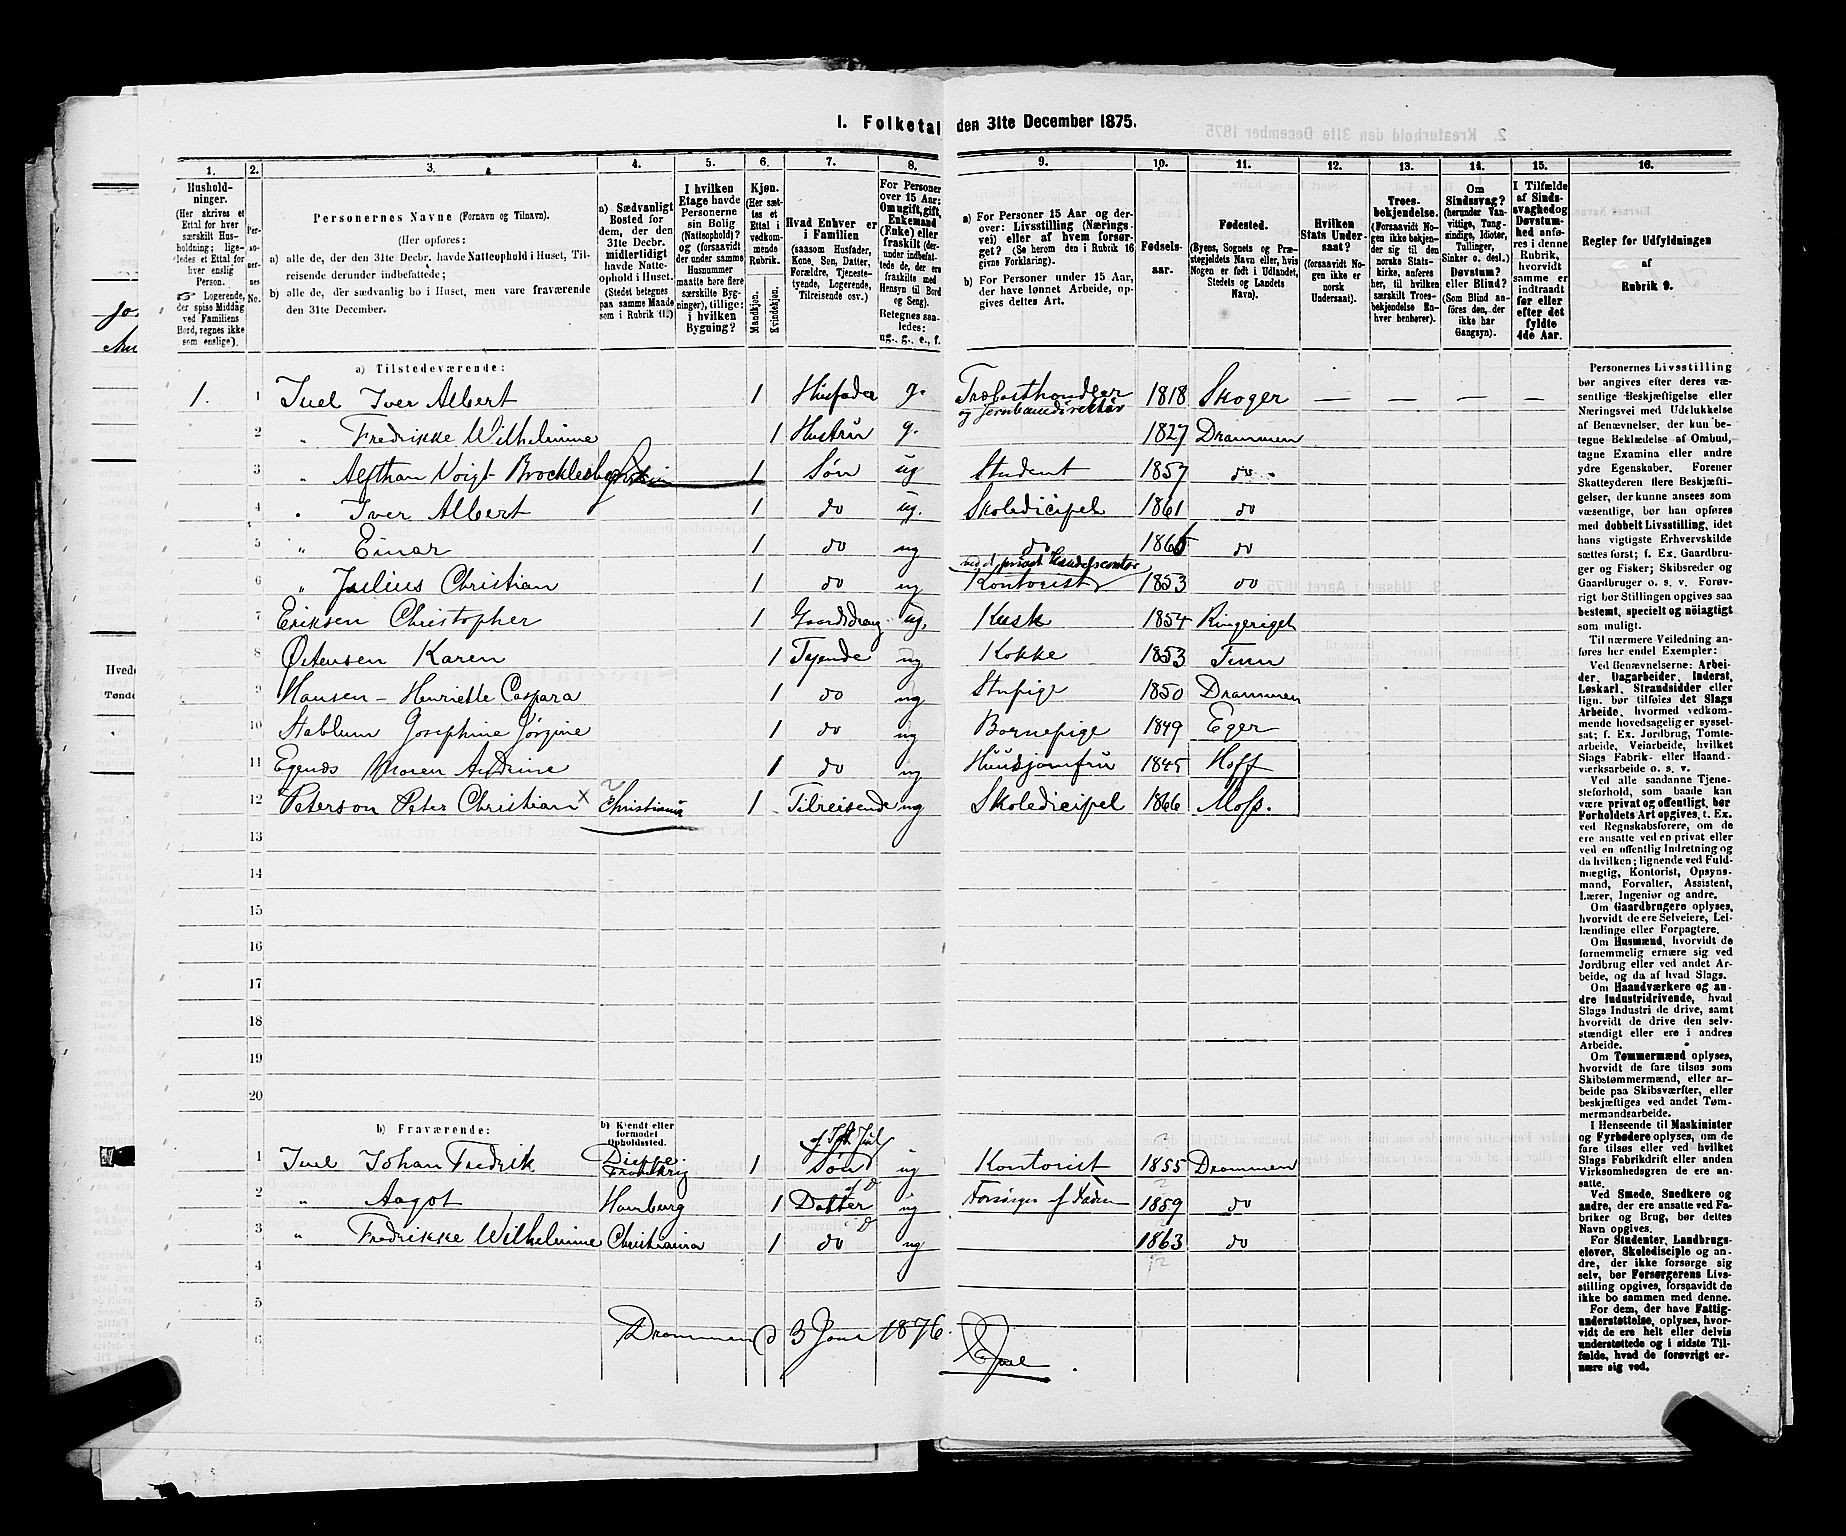 I. Folketal den 31te December 1875.
1. 2. 3. 4. 5. 6. 7. 8. 9. 10. 11. 12. 13. 14. 15. 16.
Hushold-
ninger.
(Her skrives et
Ettal for hver
særskilt Hus-
holdning; lige-
ledes et Ettal for
hver enslig
Person.
☞ Logerende,
der spise Middag
ved Familiens
Bord, regnes ikke
som enslige).
Per-
so-
ner-
nes
No.
Personernes Navne (Fornavn og Tilnavn).
(Her opføres:
a) alle de, der den 31te Decbr. havde Natteophold i Huset, Til-
reisende derunder indbefattede;
b) alle de, der sædvanlig bo i Huset, men vare fraværende
den 31te December.
a) Sædvanligt
Bosted for
dem, der den
31te Decbr.
midlertidigt
havde Natte-
ophold i Huset.
(Stedet betegnes
paa samme Maade
som i Rubrik 11.)
I hvilken
Etage havde
Personerne
sin Bolig
(Natteophold)?
og (forsaavidt
der under samme
Husnummer
maatte høre flere
særskilte Byg-
ninger), tillige:
i hvilken
Bygning?
Kjøn.
(Her sæt-
tes et
Ettal i
vedkom-
mende
Rubrik.
Mandkjøn.
Kvindekjøn.
Hvad Enhver er
i Familien
(saasom Husfader,
Kone, Søn, Datter,
Forældre, Tjeneste-
tyende, Logerende,
Tilreisende osv.)
For Personer
over 15 Aar:
Om ugift, gift,
Enkemand
(Enke) eller
fraskilt (der-
under indbefat-
tede de, der ere
fraskilte med
Hensyn til Bord
og Seng).
Betegnes saa-
ledes:
ug., g., e., f.
a) For Personer 15 Aar og der-
over: Livsstilling (Nærings-
vei) eller af hvem forsør-
get? (Se herom den i Rubrik 16
givne Forklaring).
b) For Personer under 15 Aar,
der have lønnet Arbeide, op-
gives dettes Art.
Fødsels-
aar.
Fødested.
(Byens, Sognets og Præ-
stegjeldets Navn eller, hvis
Nogen er født i Udlandet,
Stedets og Landets
Navn).
Hvilken
Stats Under-
saat?
(forsaavidt No-
gen ikke er
norsk
Undersaat).
Troes-
bekjendelse.
(Forsaavidt No-
gen ikke bekjen-
der sig til den
norske Stats-
kirke, anføres
her, til hvilken
særskilt Troes-
bekjendelse En-
hver henhører).
Om
Sindssvag?
(herunder Van-
vittige, Tung-
sindige, Idioter,
Tullinger,
Sinker o. desl.)
Døvstum?
eller Blind?
(Som Blind an-
føres den, der
ikke har
Gangsyn).
I Tilfælde
af Sinds-
svaghed og
Døvstum-
hed anfø-
res i denne
Rubrik,
hvorvidt
samme er
indtraadt
før eller
efter det
fyldte
4de Aar.
Regler for Udfyldningen
af
Rubrik 9.
a) Tilstedeværende:
1. 1 Juel Iver Albert 1 Husfader g. Trælasthandler og Jernbanedirektör 1818 Skoger — — — —
2 " Fredrikke Wilhelmine 1 Hustru g. 1827 Drammen
3 " Voigt 1 Søn ug Student 1857 do
4 " Iver Albert 1 do ug. Skoledicipel 1861 do
5 " Einar 1 do ug do do
6 " Julius Christian 1 do ug ved et privat Handelscontor Kontorist 1853 do
7 Eriksen Christopher 1 Gaardsdreng ug. Kusk 1854 Ringeriget
8 Østensen Karen 1 Tyende ug Kokke 1853
9 Hansen - Henriette Caspara 1 do ug Stupige 1850 Drammen
10 Stablum Josephine Jörgine 1 do ug Bornepige 1849 Eger
11 Maren Andrine 1 do ug Huusjomfru 1845 Hoff
12 Peterson Peter Christian × Christiania 1 Tilreisende ug Skoledicipel 1866 Moss.
13
14
15
16
17
18
19
20
b) Fraværende:
b) Kjendt eller
formodet
Opholdssted.
1 Juel Johan Fredrik Dieppe Frankrig 1 Søn ug Kontorist 1855 Drammen
2 " Aagot Hamburg 1 Datter ug Forsörges af Faderen 1859 do
3 " Fredrikke Wilhelmine Christiania 1 do ug 1863 do
4
5
6
Drammen d 3 Jan 1876. Juel
Personernes Livsstilling
bør angives efter deres væ-
sentlige Beskjæftigelse eller
Næringsvei med Udelukkelse
af Benævnelser, der kun be-
tegne Beklædelse af Ombud,
tagne Examina eller andre
ydre Egenskaber. Forener
Skatteyderen flere Beskjæfti-
gelser, der kunne ansees som
væsentlige, bør han opføres
med dobbelt Livsstilling, idet
hans vigtigste Erhvervskilde
sættes først; f. Ex. Gaardbru-
ger og Fisker; Skibsreder og
Gaardbruger o. s. v. Forøv-
rigt bør Stillingen opgives saa
bestemt, specielt og nöiagtigt
som muligt.
Til nærmere Veiledning an-
føres her endel Exempler:
Ved Benævnelserne: Arbei-
der, Dagarbeider, Inderst,
Løskarl, Strandsidder eller
lign. bør tilføies det Slags
Arbeide, hvormed vedkom-
mende hovedsagelig er syssel-
sat; f. Ex. Jordbrug, Tomte-
arbeide, Veiarbeide, hvilket
Slags Fabrik- eller Haand-
værksarbeide o. s. v.
Ved alle saadanne Tjene-
steforhold, som baade kan
være privat og offentligt, bør
Forholdets Art opgives, t. Ex.
ved Regnskabsførere, om de
ere ansatte ved en privat eller
ved en offentlig Indretning og
da hvilken; lignende ved Fuld-
mægtig, Kontorist, Opsyns-
mand, Forvalter, Assistent,
Lærer, Ingeniør og andre.
Om Gaardbrugere oplyses,
hvorvidt de ere Selveiere, Lei-
lændinge eller Forpagtere.
Om Husmænd, hvorvidt de
fornemmelig ernære sig ved
Jordbrug eller ved andet Ar-
beide, og da af hvad Slags.
Om Haandværkere og an-
dre Industridrivende, hvad
Slags Industri de drive, samt
hvorvidt de drive den selv-
stændigt eller ere i andres
Arbeide.
Om Tømmermænd oplyses,
hvorvidt de fare tilsøs som
Skibstømmermænd, eller ar-
beide paa Skibsværfter, eller
beskjæftiges ved andet Tøm-
mermandsarbeide.
I Henseende til Maskinister
og Fyrbødere oplyses, om de
fare tilsøs eller ved hvilket
Slags Fabrikdrift eller anden
Virksomhedsgren de ere an-
satte.
Ved Smede, Snedkere og
andre, der ere ansatte ved Fa-
briker og Brug, bør dettes
Navn opgives.
For Studenter, Landbrugs-
elever, Skoledisciple og an-
dre, der ikke forsørge sig
selv, bør Forsørgerens Livs-
stilling opgives, forsaavidt de
ikke bo sammen med denne.
For dem, der have Fattig-
understøttelse, oplyses, hvor-
vidt de ere helt eller delvis
understøttede og i sidste Til-
fælde, hvad de forøvrigt er-
nære sig ved.